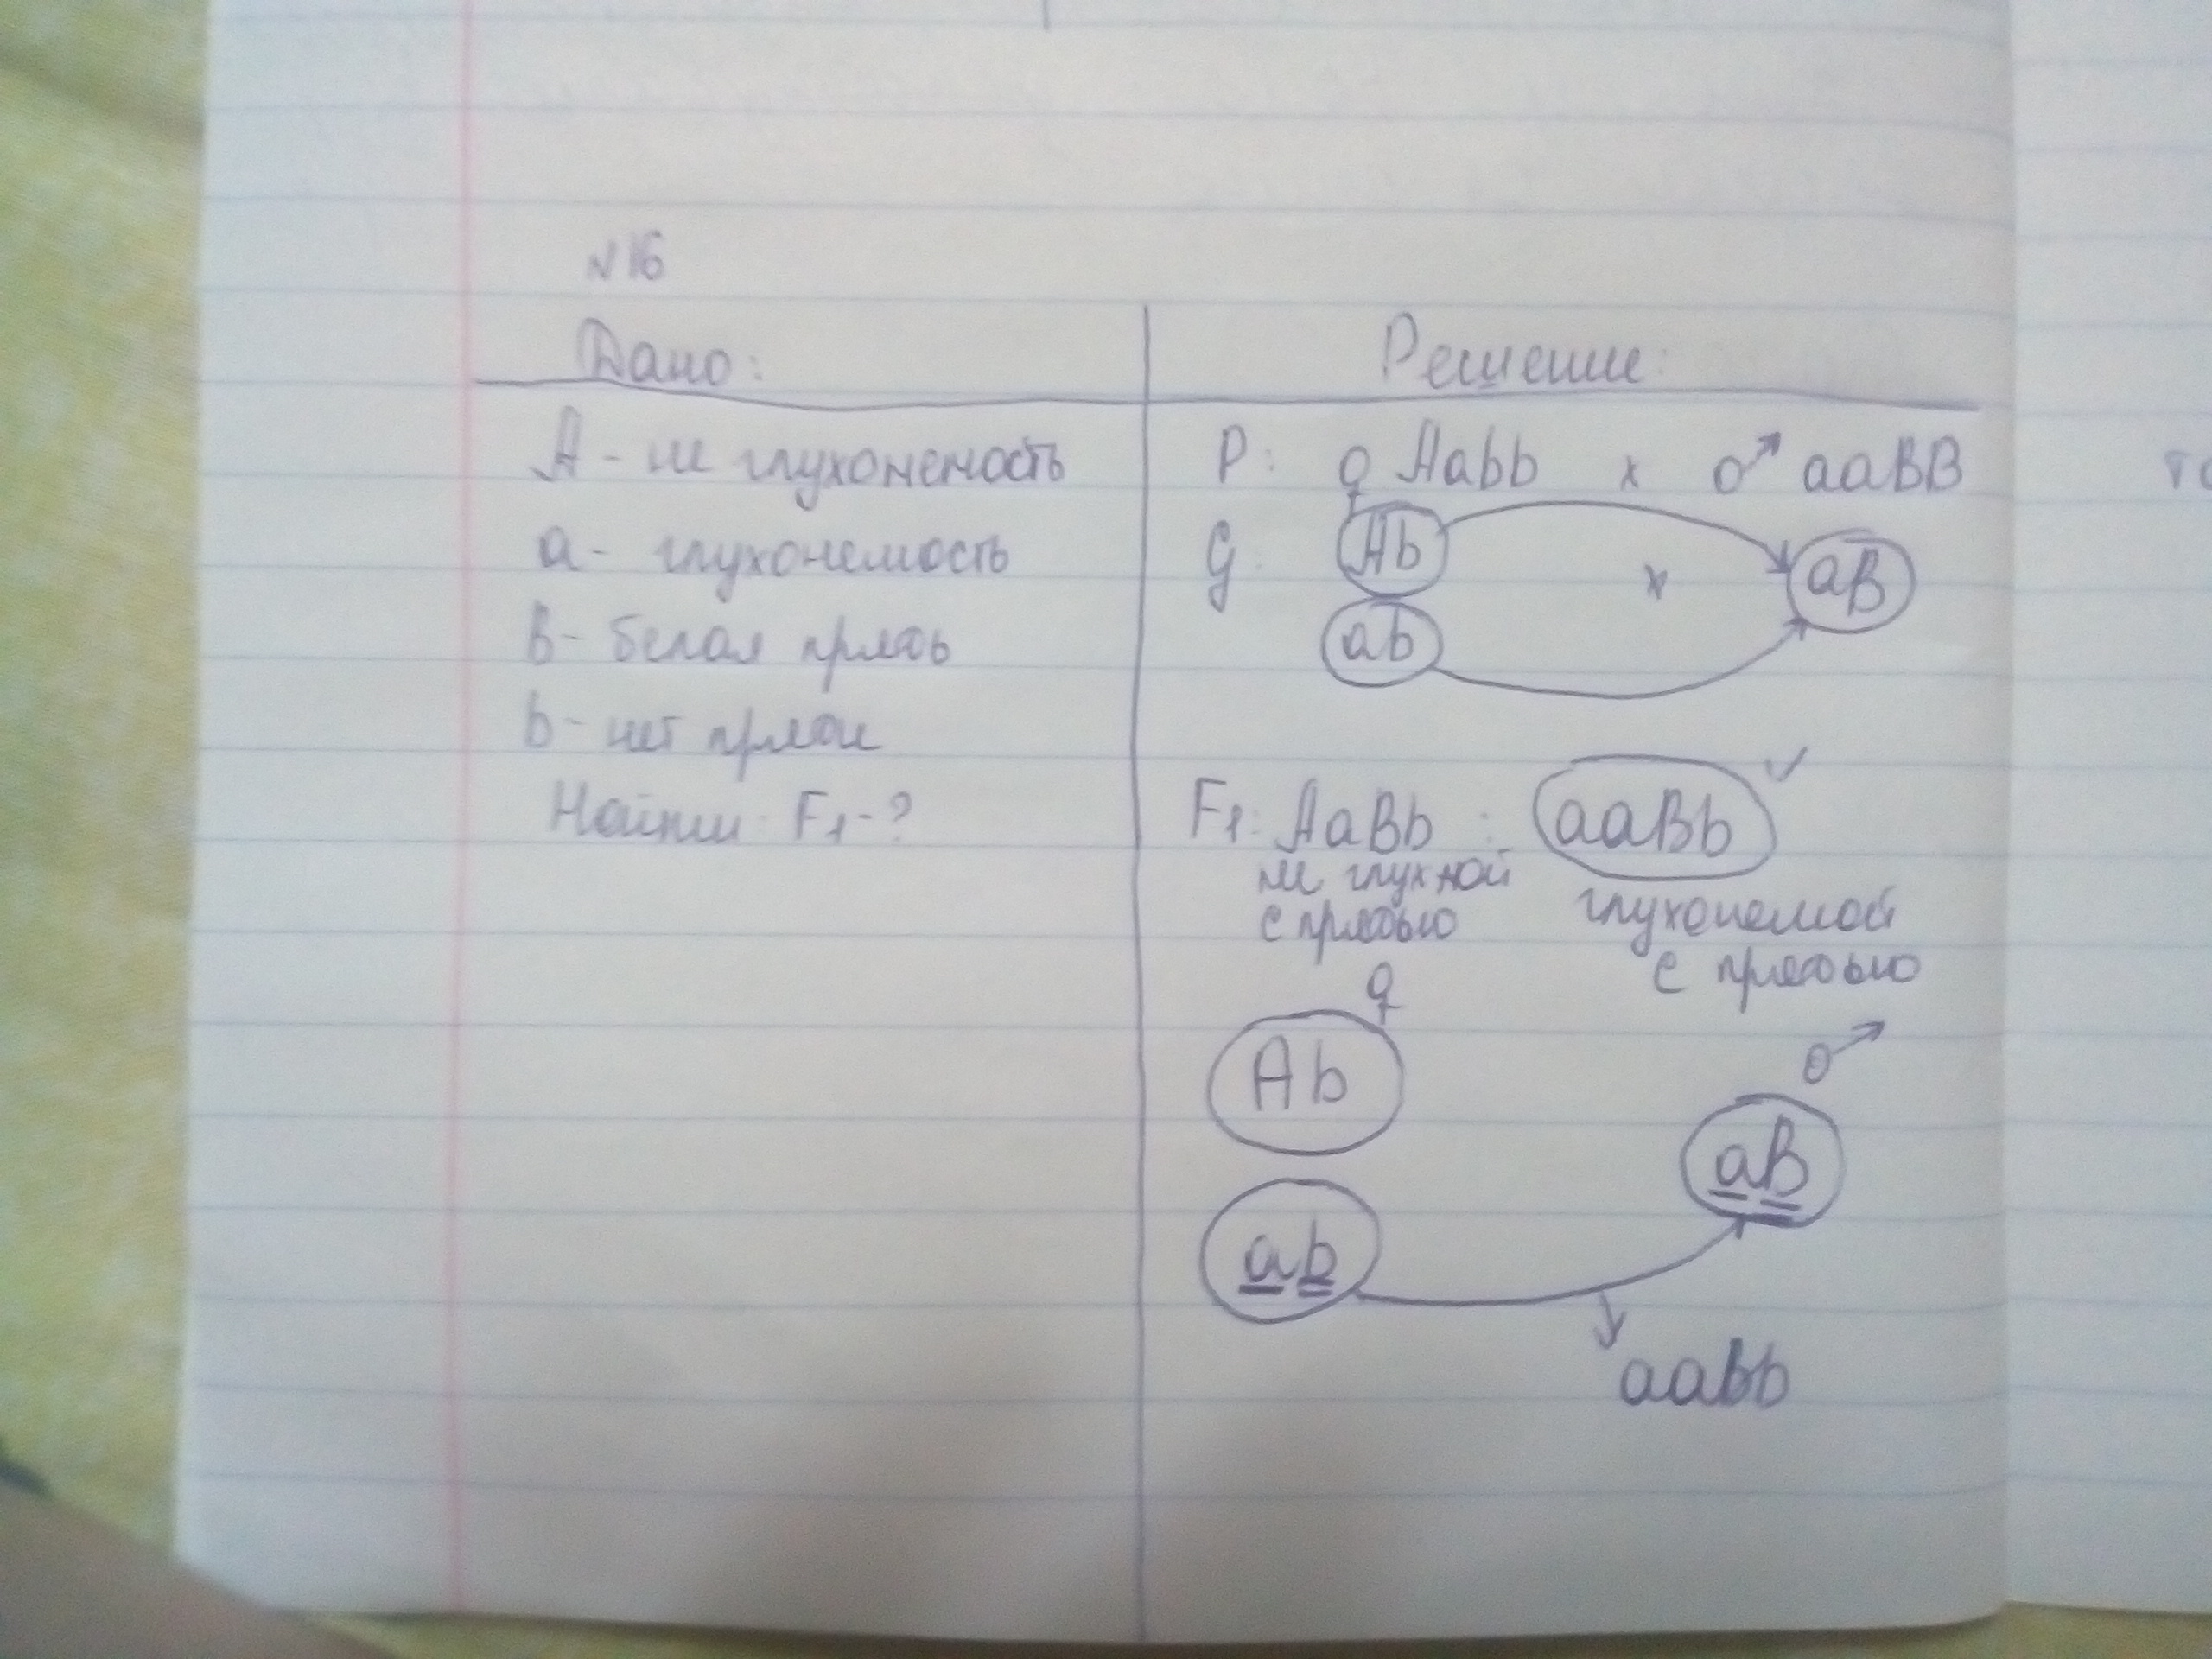 №16
Дано:
А - не глухонемость
а - глухонемость
В - белая прядь
b - нет пряди
Найти: F1-?
Решение:
P: ♀ Aabb x ♂ aaBB
G: Ab x aB
ab
F1: AaBb : aaBb ✓
не глухной
с прядью
глухонемой
с прядью
♀
Ab
♂
aB
ab
aaBb